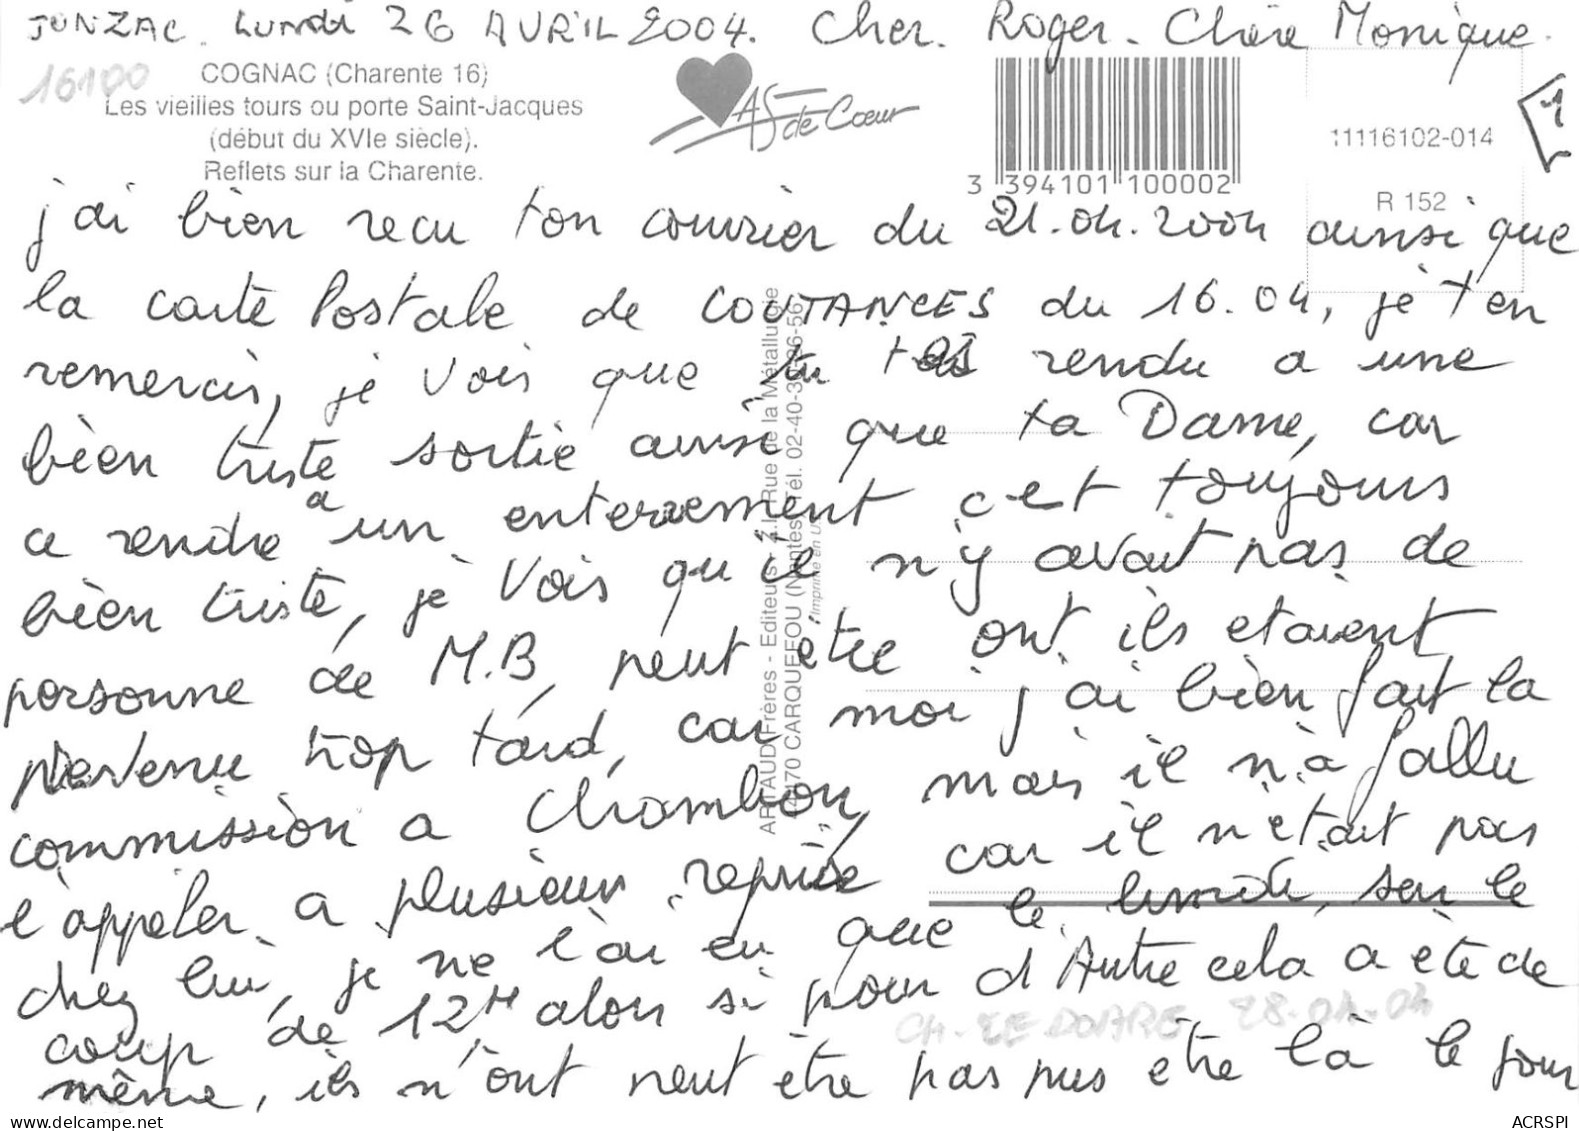 JONZAC. Lundi 26 AVRIL 2004. Cher. Roger. Chère Monique.
16100
COGNAC (Charente 16)
Les vieilles tours ou porte Saint-Jacques
(début du XVIe siècle).
Reflets sur la Charente.
AS de Cœur
3 394101 100002
11116102-014
R 152
1
j'ai bien recu ton courrier du 21.04.2004 ainsi que
la carte Postale de COUTANCES du 16.04, je t'en
remercis, je vois que tu t'es rendu a une
bien triste sortie ainsi que ta Dame, car
ce rendre a un enterrement cet toujours
bien triste, je vois qu'il n'y avait pas de
personne de M.B, peut être ont ils etaient
prevenu trop tard, car moi j'ai bien fait la
commission a Chambon, mais il n'a fallu
l'appeler a plusieur reprise car il n'etait pas
chez lui, je ne l'ai eu que le lundi, sur le
coup de 12H alors si pour d'Autre cela a ete de
même, ils n'ont peut être pas pus etre là le jour
ARTAUD Frères - Editeurs - Rue de la Métallurgie
CARQUEFOU (Nantes) Tél. 02-40-
Imprimé en
CH. LE DOARE 28.04.04
ACRSPI